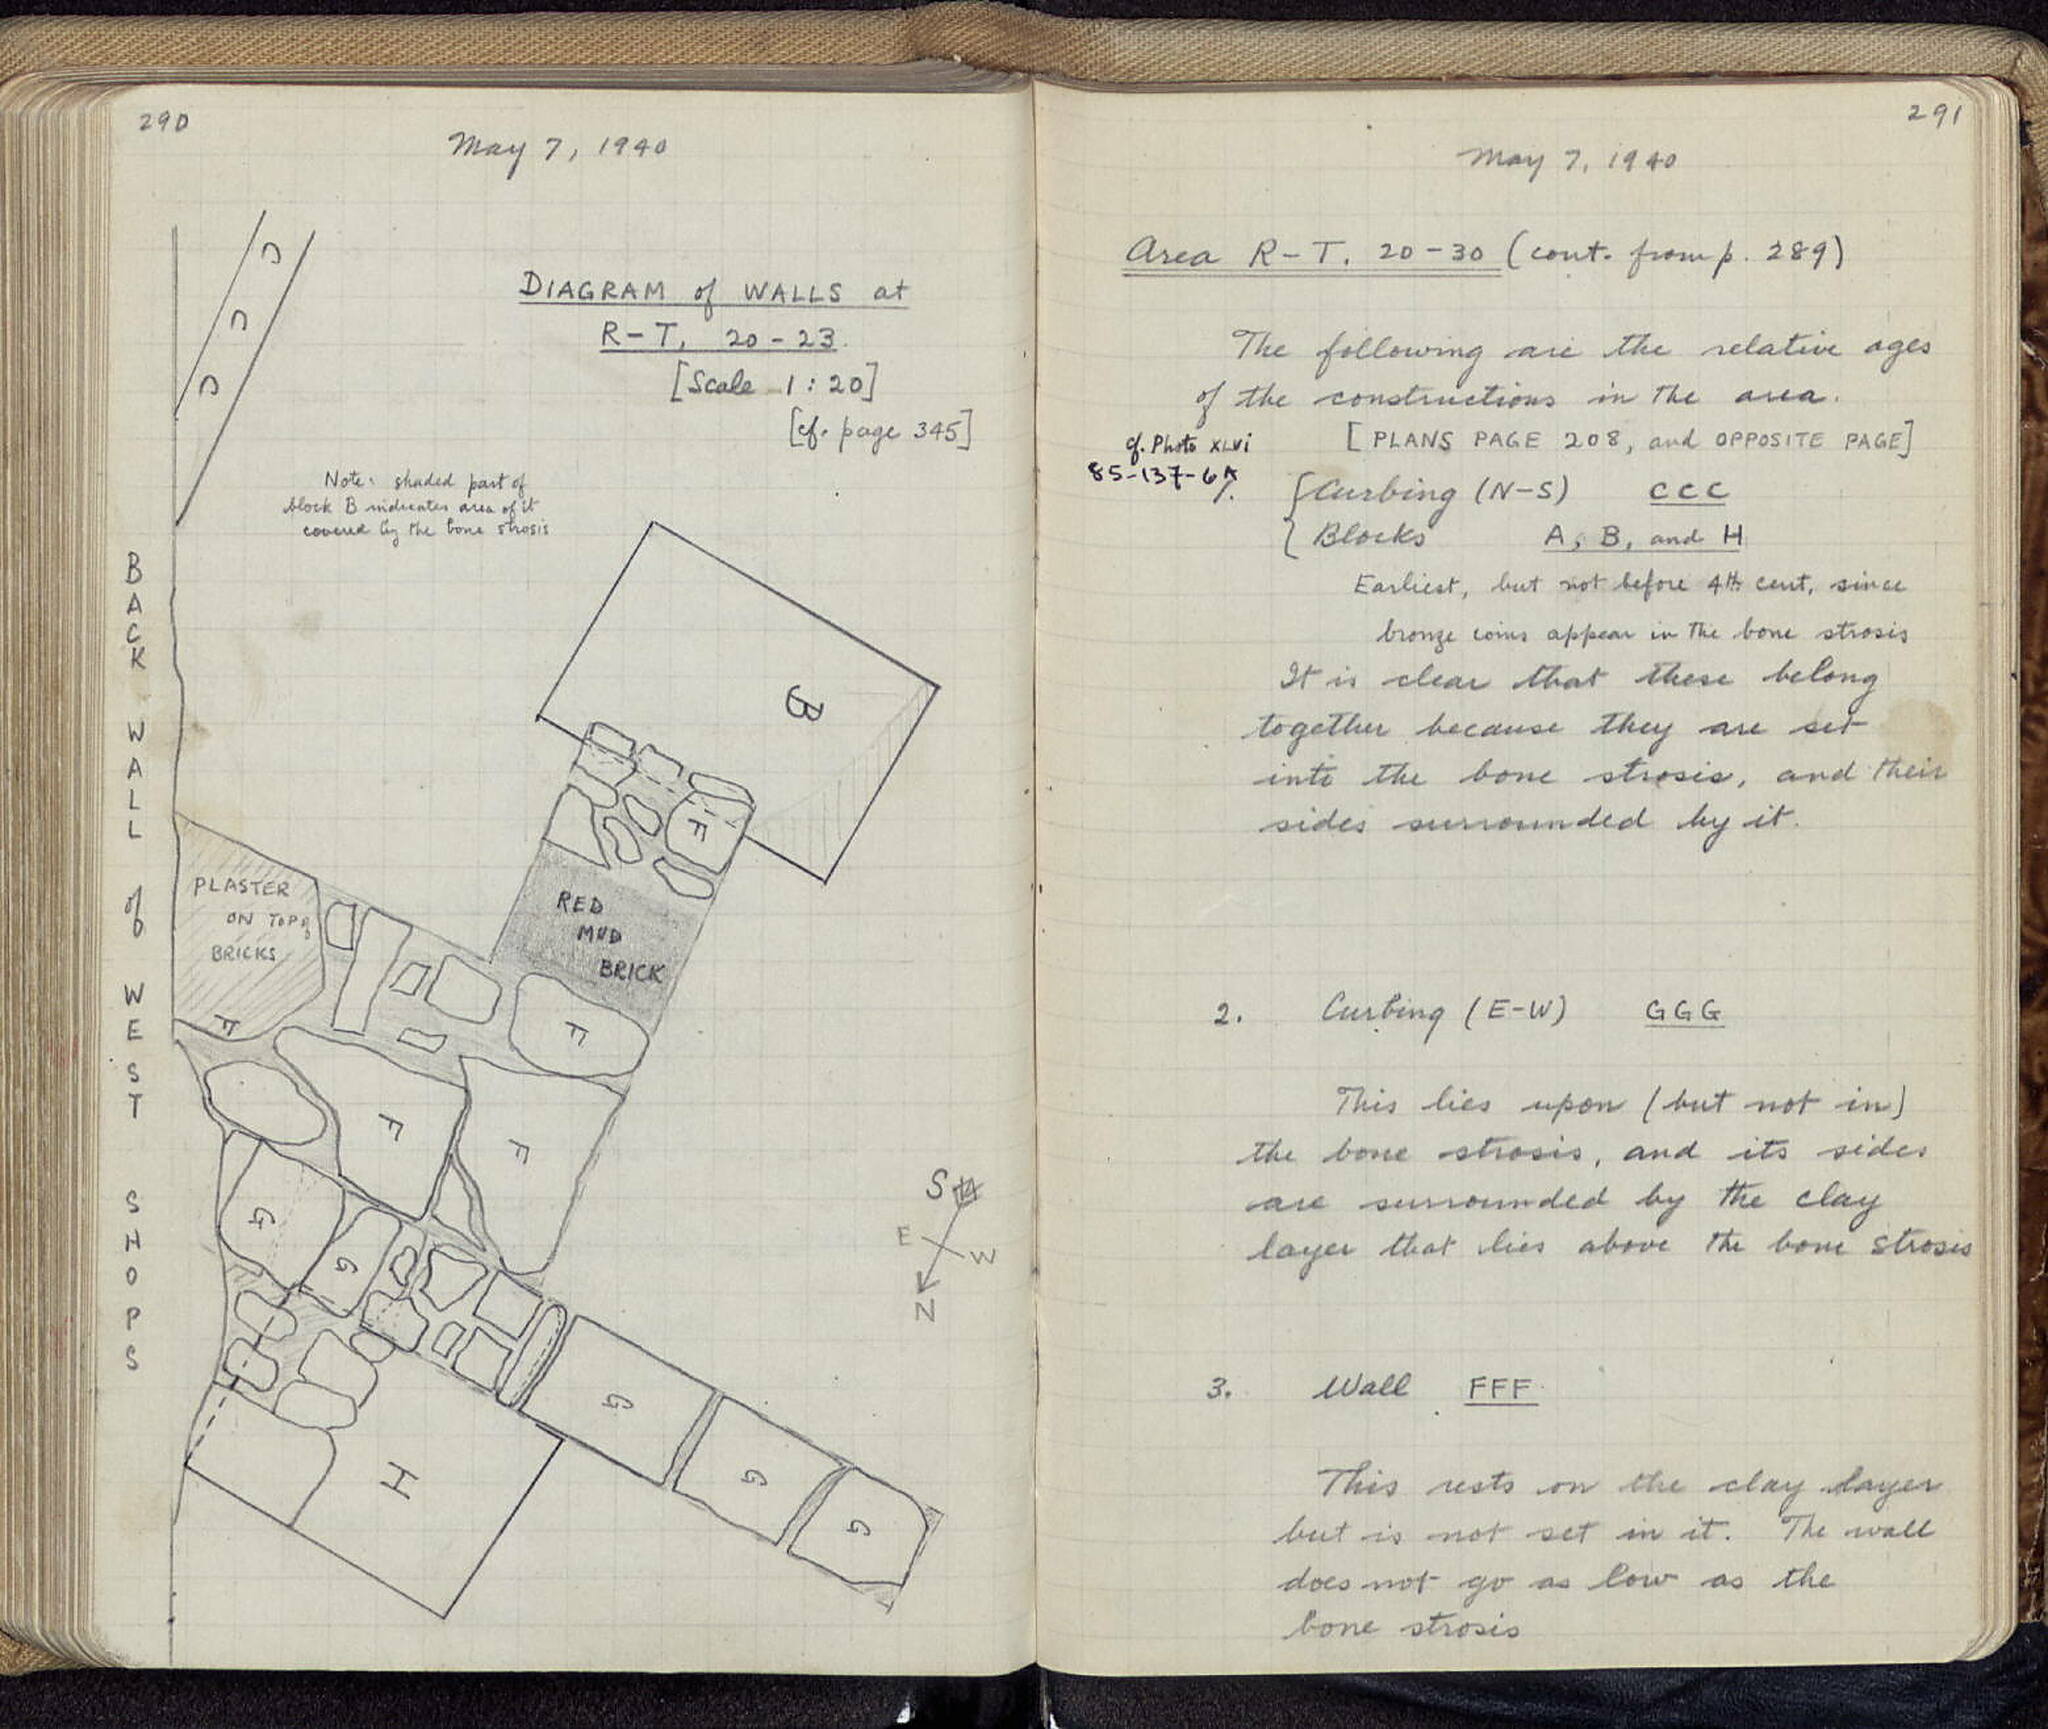 290
May 7, 1940
DIAGRAM of WALLS at
R-T, 20-23.
[Scale 1:20]
[cf. page 345]
C
C
C
Note: shaded part of
block B indicates area of it
covered by the bone strosis
BACK WALL of WEST SHOPS
B
F
RED
MUD
BRICK
PLASTER
ON TOP of
BRICKS
F
F
F
F
G
G
S
E
W
N
G
G
G
H
291
May 7, 1940
Area R-T. 20-30 (cont. from p. 289)
The following are the relative ages
of the constructions in the area.
[PLANS PAGE 208, and OPPOSITE PAGE]
cf. Photo XLVI
85-137-6A
1. { Curbing (N-S) CCC
{ Blocks A, B, and H
Earliest, but not before 4th cent, since
bronze coins appear in the bone strosis
It is clear that these belong
together because they are set
into the bone strosis, and their
sides surrounded by it.
2. Curbing (E-W) GGG
This lies upon (but not in)
the bone strosis, and its sides
are surrounded by the clay
layer that lies above the bone strosis
3. Wall FFF.
This rests on the clay layer
but is not set in it. The wall
does not go as low as the
bone strosis